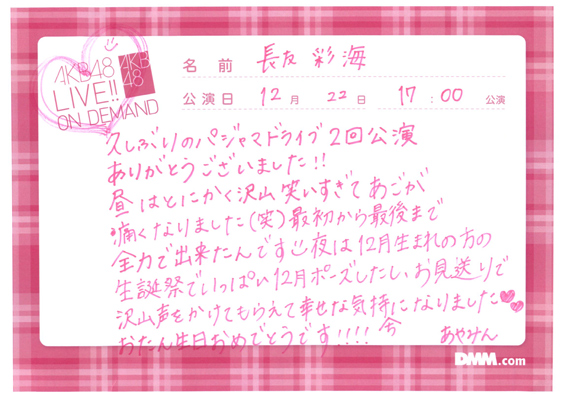 AKB48
LIVE!!
ON DEMAND
AKB
48
名前 長友 彩海
公演日 12月 22日 17:00 公演
久しぶりのパジャマドライブ2回公演
ありがとうございました!!
昼はとにかく沢山笑いすぎてあごが
痛くなりました(笑)最初から最後まで
全力で出来たんです 夜は12月生まれの方の
生誕祭でいっぱい12月ポーズしたし、お見送りで
沢山声をかけてもらえて幸せな気持になりました
おたん生日おめでとうです!!!!
あやみん
DMM.com